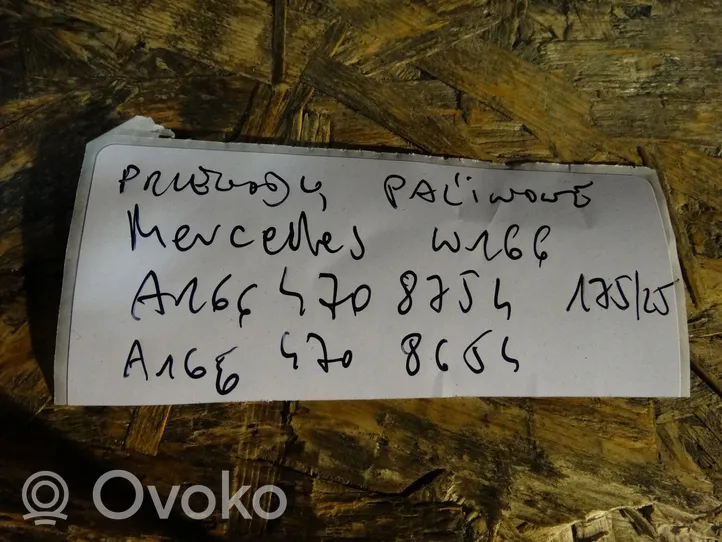 PRZEWODY PALIWOWE
Mercedes W166
A166 470 8754 175/25
A166 470 8654
OVOKO